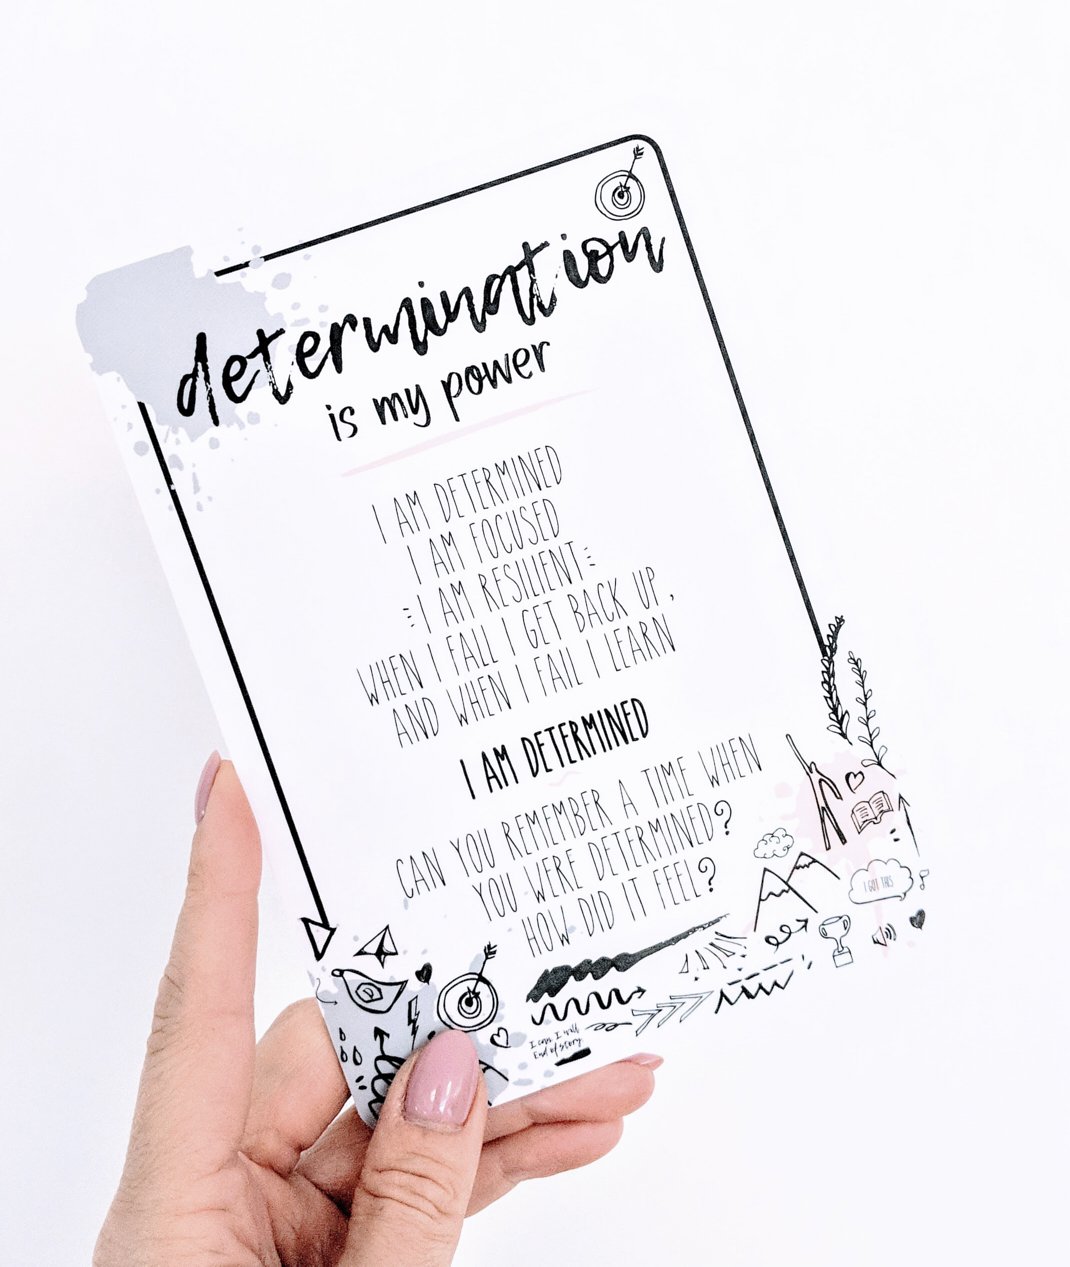 determination
is my power
I AM DETERMINED
I AM FOCUSED
I AM RESILIENT
WHEN I FALL I GET BACK UP,
AND WHEN I FAIL I LEARN
I AM DETERMINED
CAN YOU REMEMBER A TIME WHEN
YOU WERE DETERMINED?
HOW DID IT FEEL?
I GOT THIS
I can, I will
End of story